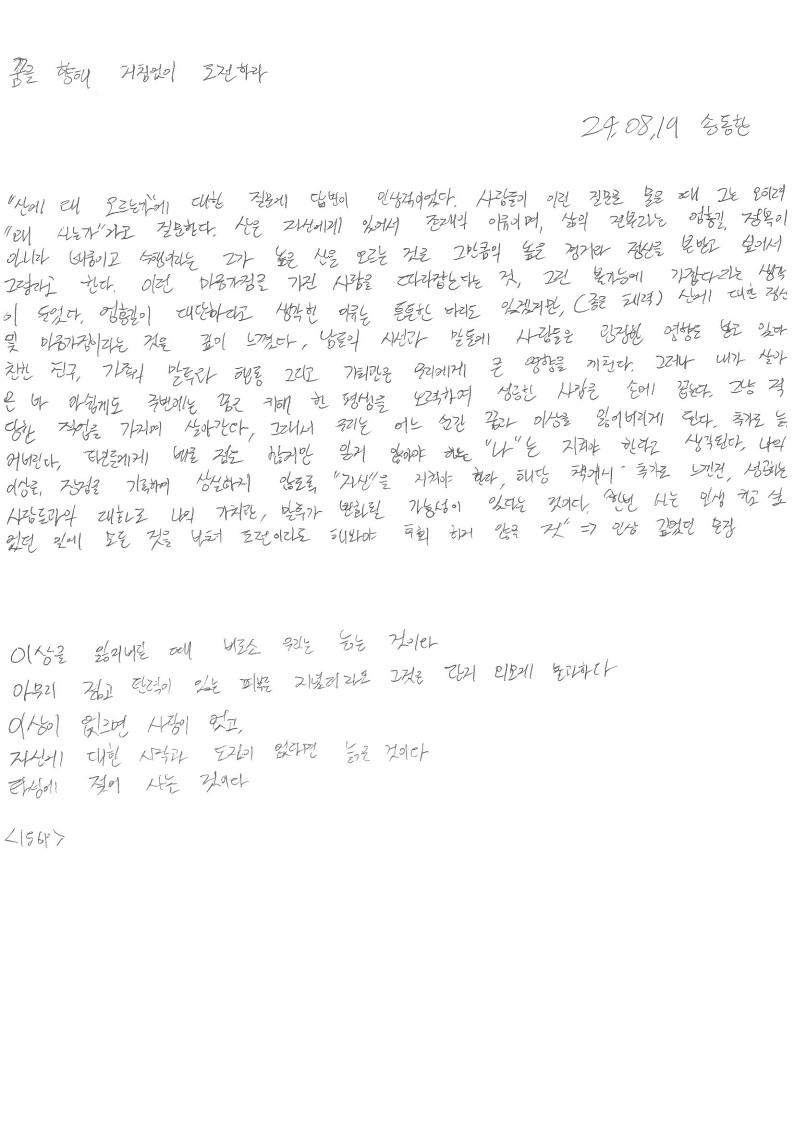 꿈을 향해 거침없이 도전하라
24.08.19 송동환
"산에 왜 오르는가"에 대한 질문에 답변이 인상적이었다. 사람들이 이런 질문을 물을 때 그는 오히려
"왜 사는가"라고 질문한다. 산은 자신에게 있어서 존재의 이유이며, 삶의 전부라는 엄홍길, 정복이
아니라 배움이고 수행이라는 그가 높은 산을 오르는 것은 그만큼의 높은 경지와 정신을 본받고 싶어서
그렇다고 한다. 이런 마음가짐을 가진 사람을 따라잡는다는 것, 그건 불가능에 가깝다라는 생각
이 들었다. 엄홍길이 대단하다고 생각한 이유는 튼튼한 다리도 있겠지만, (물론 체력) 산에 대한 정신
및 마음가짐이라는 것을 깊이 느꼈다, 남들의 시선과 말들에 사람들은 굉장한 영향도 받고 있다
친한 친구, 가족의 말투와 행동 그리고 가치관은 우리에게 큰 영향을 끼친다. 그러나 내가 살아
온 바 아쉽게도 주변에는 꿈을 위해 한 평생을 노력하여 성공한 사람은 손에 꼽는다. 그냥 적
당한 직업을 가지며 살아간다, 그래서 우리는 어느 순간 꿈과 이상을 잃어버리게 된다. 추가로 늙
어버린다, 타분들에게 배울 점도 많지만 잃지 않아야 하는 "나"는 지켜야 한다고 생각된다. 나의
이상을, 진정을 기록하여 상실하지 않도록 "자신"을 지켜야 한다, 해당 책에서 추가로 느낀건, 성공하는
사람들과의 대화로 나의 가치관, 말투가 변화될 가능성이 있다는 것이다. "한번 사는 인생 하고 싶
었던 일에 모든 것을 바쳐 도전이라도 해봐야 후회 하지 않을 것" => 인상 깊었던 문장
이상을 잃어버릴 때 비로소 우리는 늙는 것이다
아무리 젊고 탄력이 있는 피부를 지녔더라도 그것은 단지 외모에 불과하다
이상이 없으면 사랑이 없고,
자신에 대한 시작과 도전이 없다면 늙은 것이다
타성에 젖어 사는 것이다
<156p>